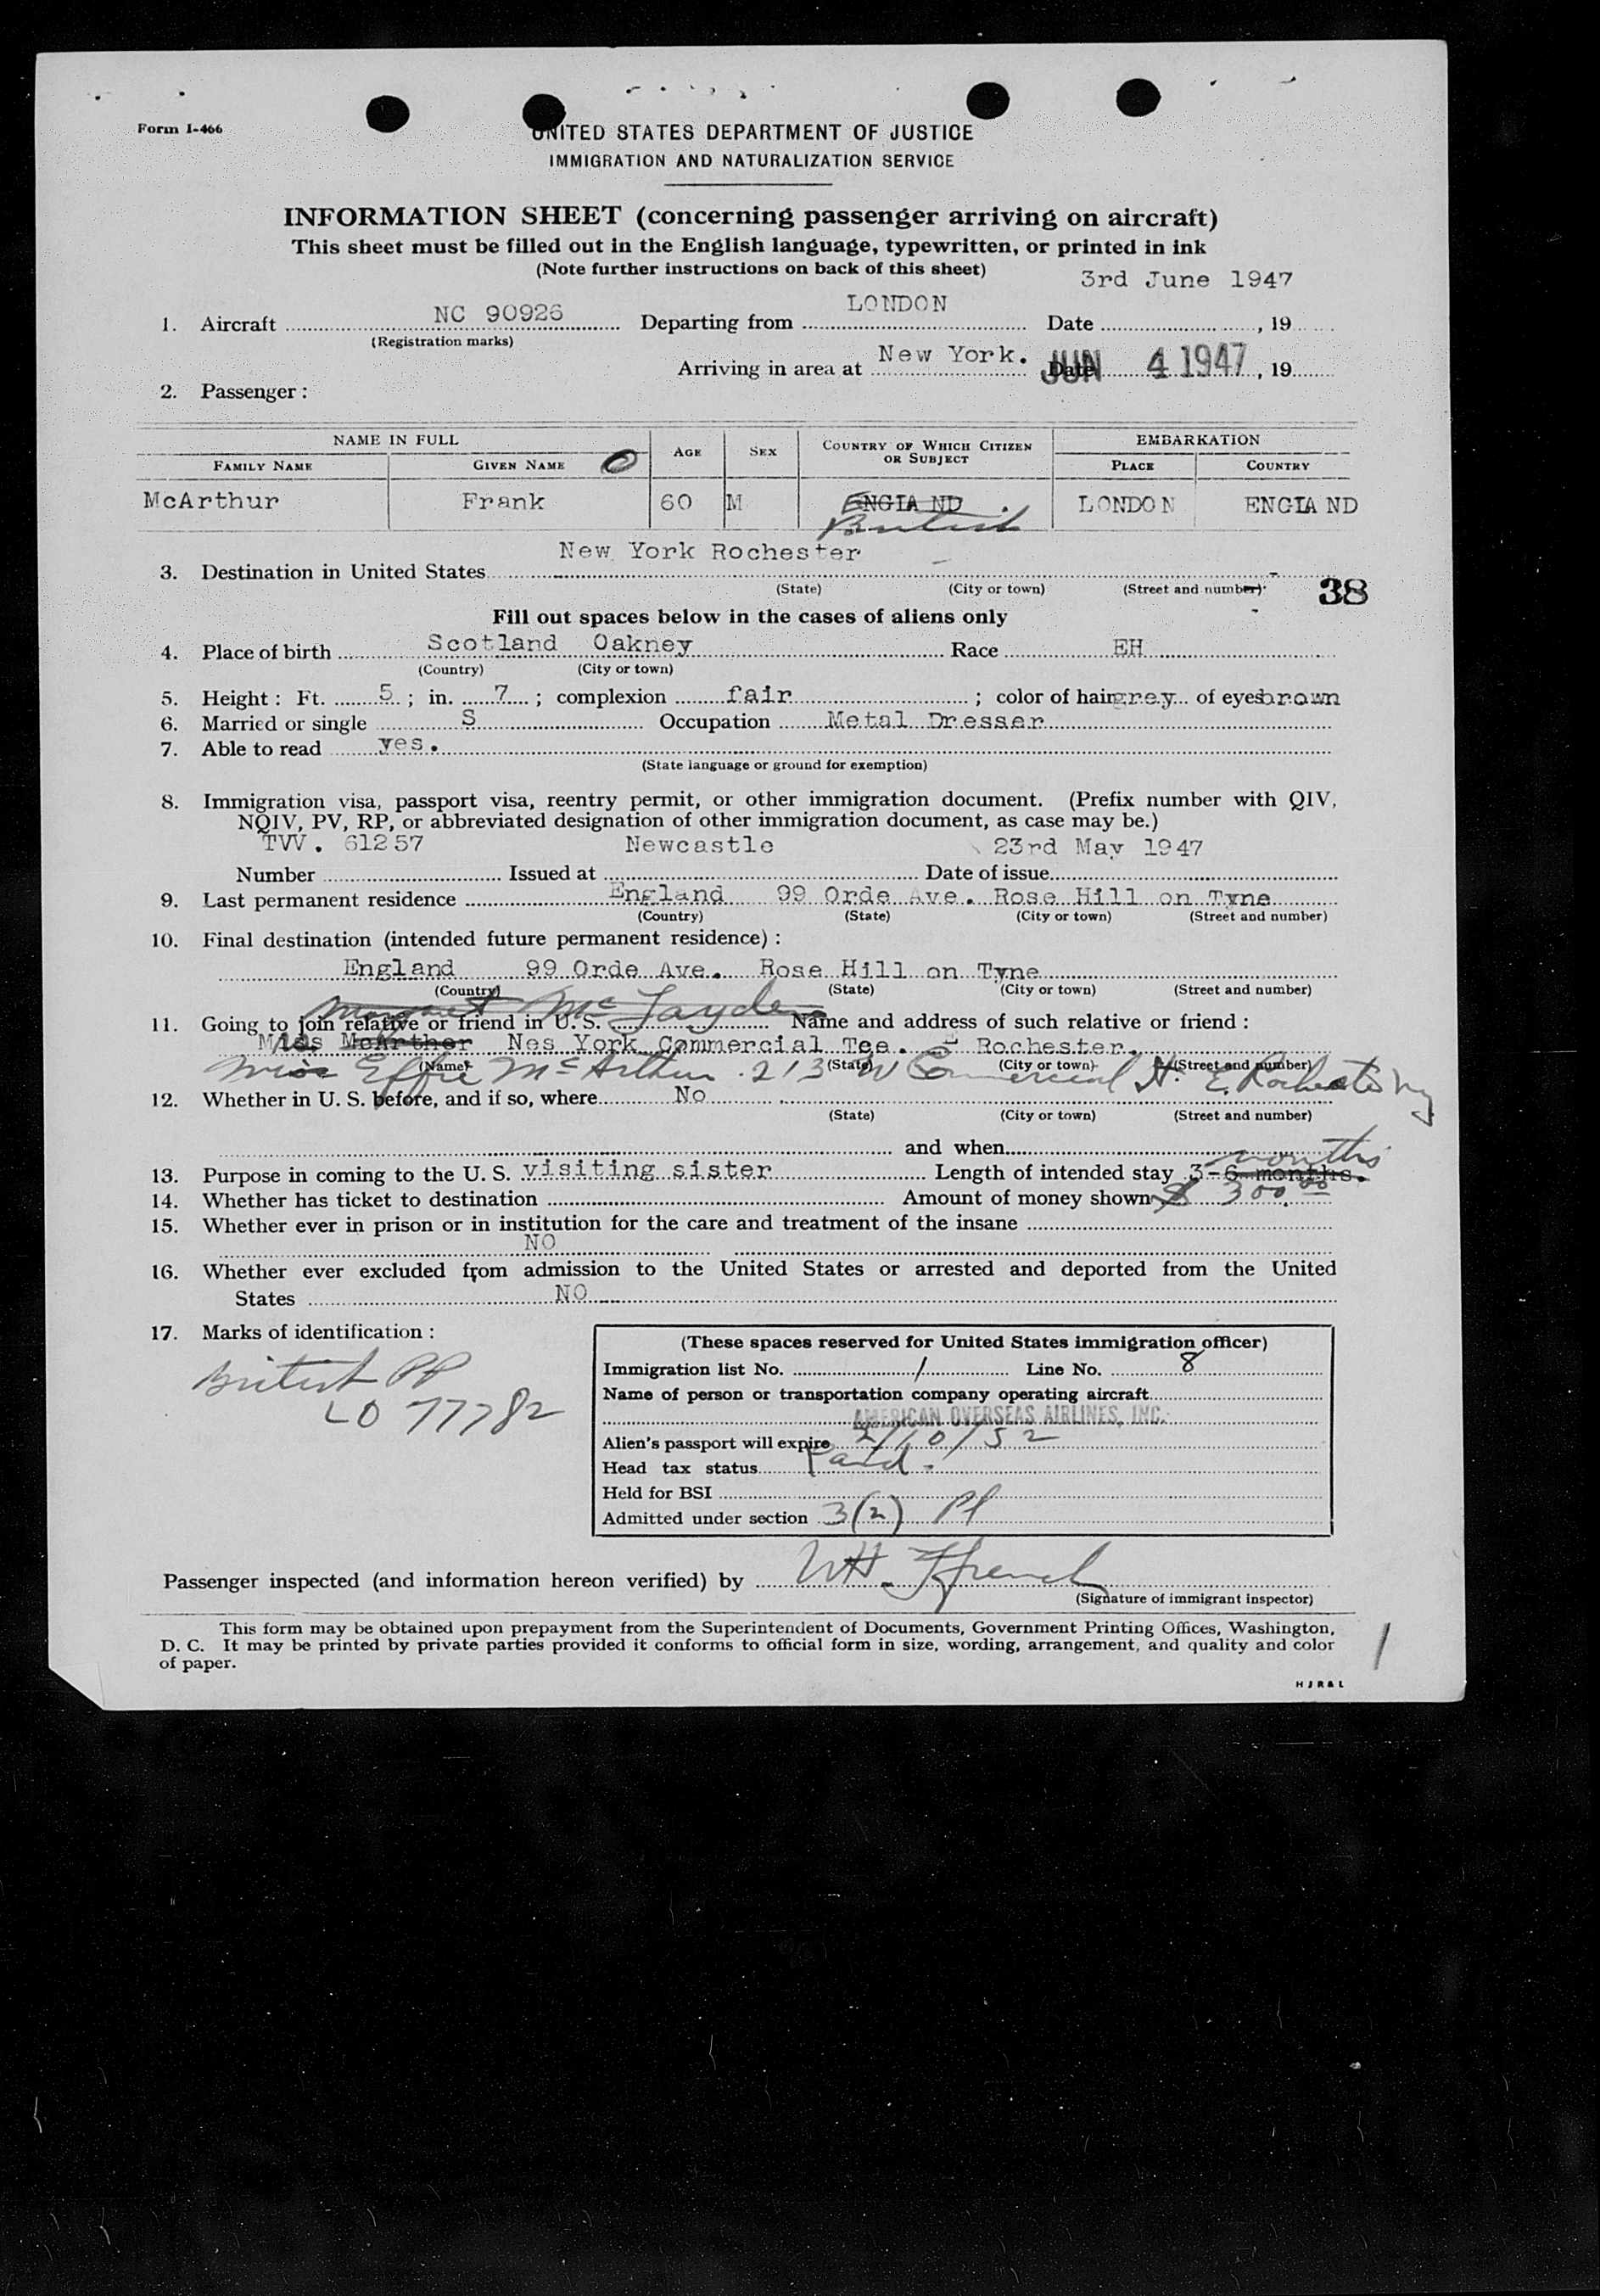 Form I-466
UNITED STATES DEPARTMENT OF JUSTICE
IMMIGRATION AND NATURALIZATION SERVICE
INFORMATION SHEET (concerning passenger arriving on aircraft)
This sheet must be filled out in the English language, typewritten, or printed in ink
(Note further instructions on back of this sheet)
3rd June 1947
1. Aircraft NC 90926 Departing from LONDON Date , 19
(Registration marks)
Arriving in area at New York. Date JUN 4 1947, 19
2. Passenger:
NAME IN FULL AGE SEX COUNTRY OF WHICH CITIZEN OR SUBJECT EMBARKATION
FAMILY NAME GIVEN NAME PLACE COUNTRY
McArthur Frank 60 M ENGLA ND LONDON ENGLA ND
British
New York Rochester
3. Destination in United States
(State) (City or town) (Street and number)
38
Fill out spaces below in the cases of aliens only
4. Place of birth Scotland Oakney Race EH
(Country) (City or town)
5. Height: Ft. 5; in. 7; complexion fair; color of hair grey of eyes brown
6. Married or single S Occupation Metal Dresser
7. Able to read yes.
(State language or ground for exemption)
8. Immigration visa, passport visa, reentry permit, or other immigration document. (Prefix number with QIV,
NQIV, PV, RP, or abbreviated designation of other immigration document, as case may be.)
TVV. 61257 Newcastle 23rd May 1947
Number Issued at Date of issue
9. Last permanent residence England 99 Orde Ave. Rose Hill on Tyne
(Country) (State) (City or town) (Street and number)
10. Final destination (intended future permanent residence):
England 99 Orde Ave. Rose Hill on Tyne
(Country) (State) (City or town) (Street and number)
11. Going to join relative or friend in U. S. Margaret Name and address of such relative or friend:
Miss McArther Nes York Commercial Tee. E Rochester.
(Name) (State) (City or town) (Street and number)
Miss Effie McArthur 213 W Commercial St. E. Rochester NY
12. Whether in U. S. before, and if so, where No
(State) (City or town) (Street and number)
and when
months
13. Purpose in coming to the U. S. visiting sister Length of intended stay 3-6 months.
14. Whether has ticket to destination Amount of money shown $ 300.00
15. Whether ever in prison or in institution for the care and treatment of the insane
NO
16. Whether ever excluded from admission to the United States or arrested and deported from the United
States NO
17. Marks of identification:
British PP
LO 77782
(These spaces reserved for United States immigration officer)
Immigration list No. 1 Line No. 8
Name of person or transportation company operating aircraft
AMERICAN OVERSEAS AIRLINES, INC.
Alien's passport will expire 2/10/52
Head tax status Paid.
Held for BSI
Admitted under section 3(2) Pl
Passenger inspected (and information hereon verified) by WH. Ffrench
(Signature of immigrant inspector)
This form may be obtained upon prepayment from the Superintendent of Documents, Government Printing Offices, Washington,
D. C. It may be printed by private parties provided it conforms to official form in size, wording, arrangement, and quality and color
of paper.
1
HJR&L